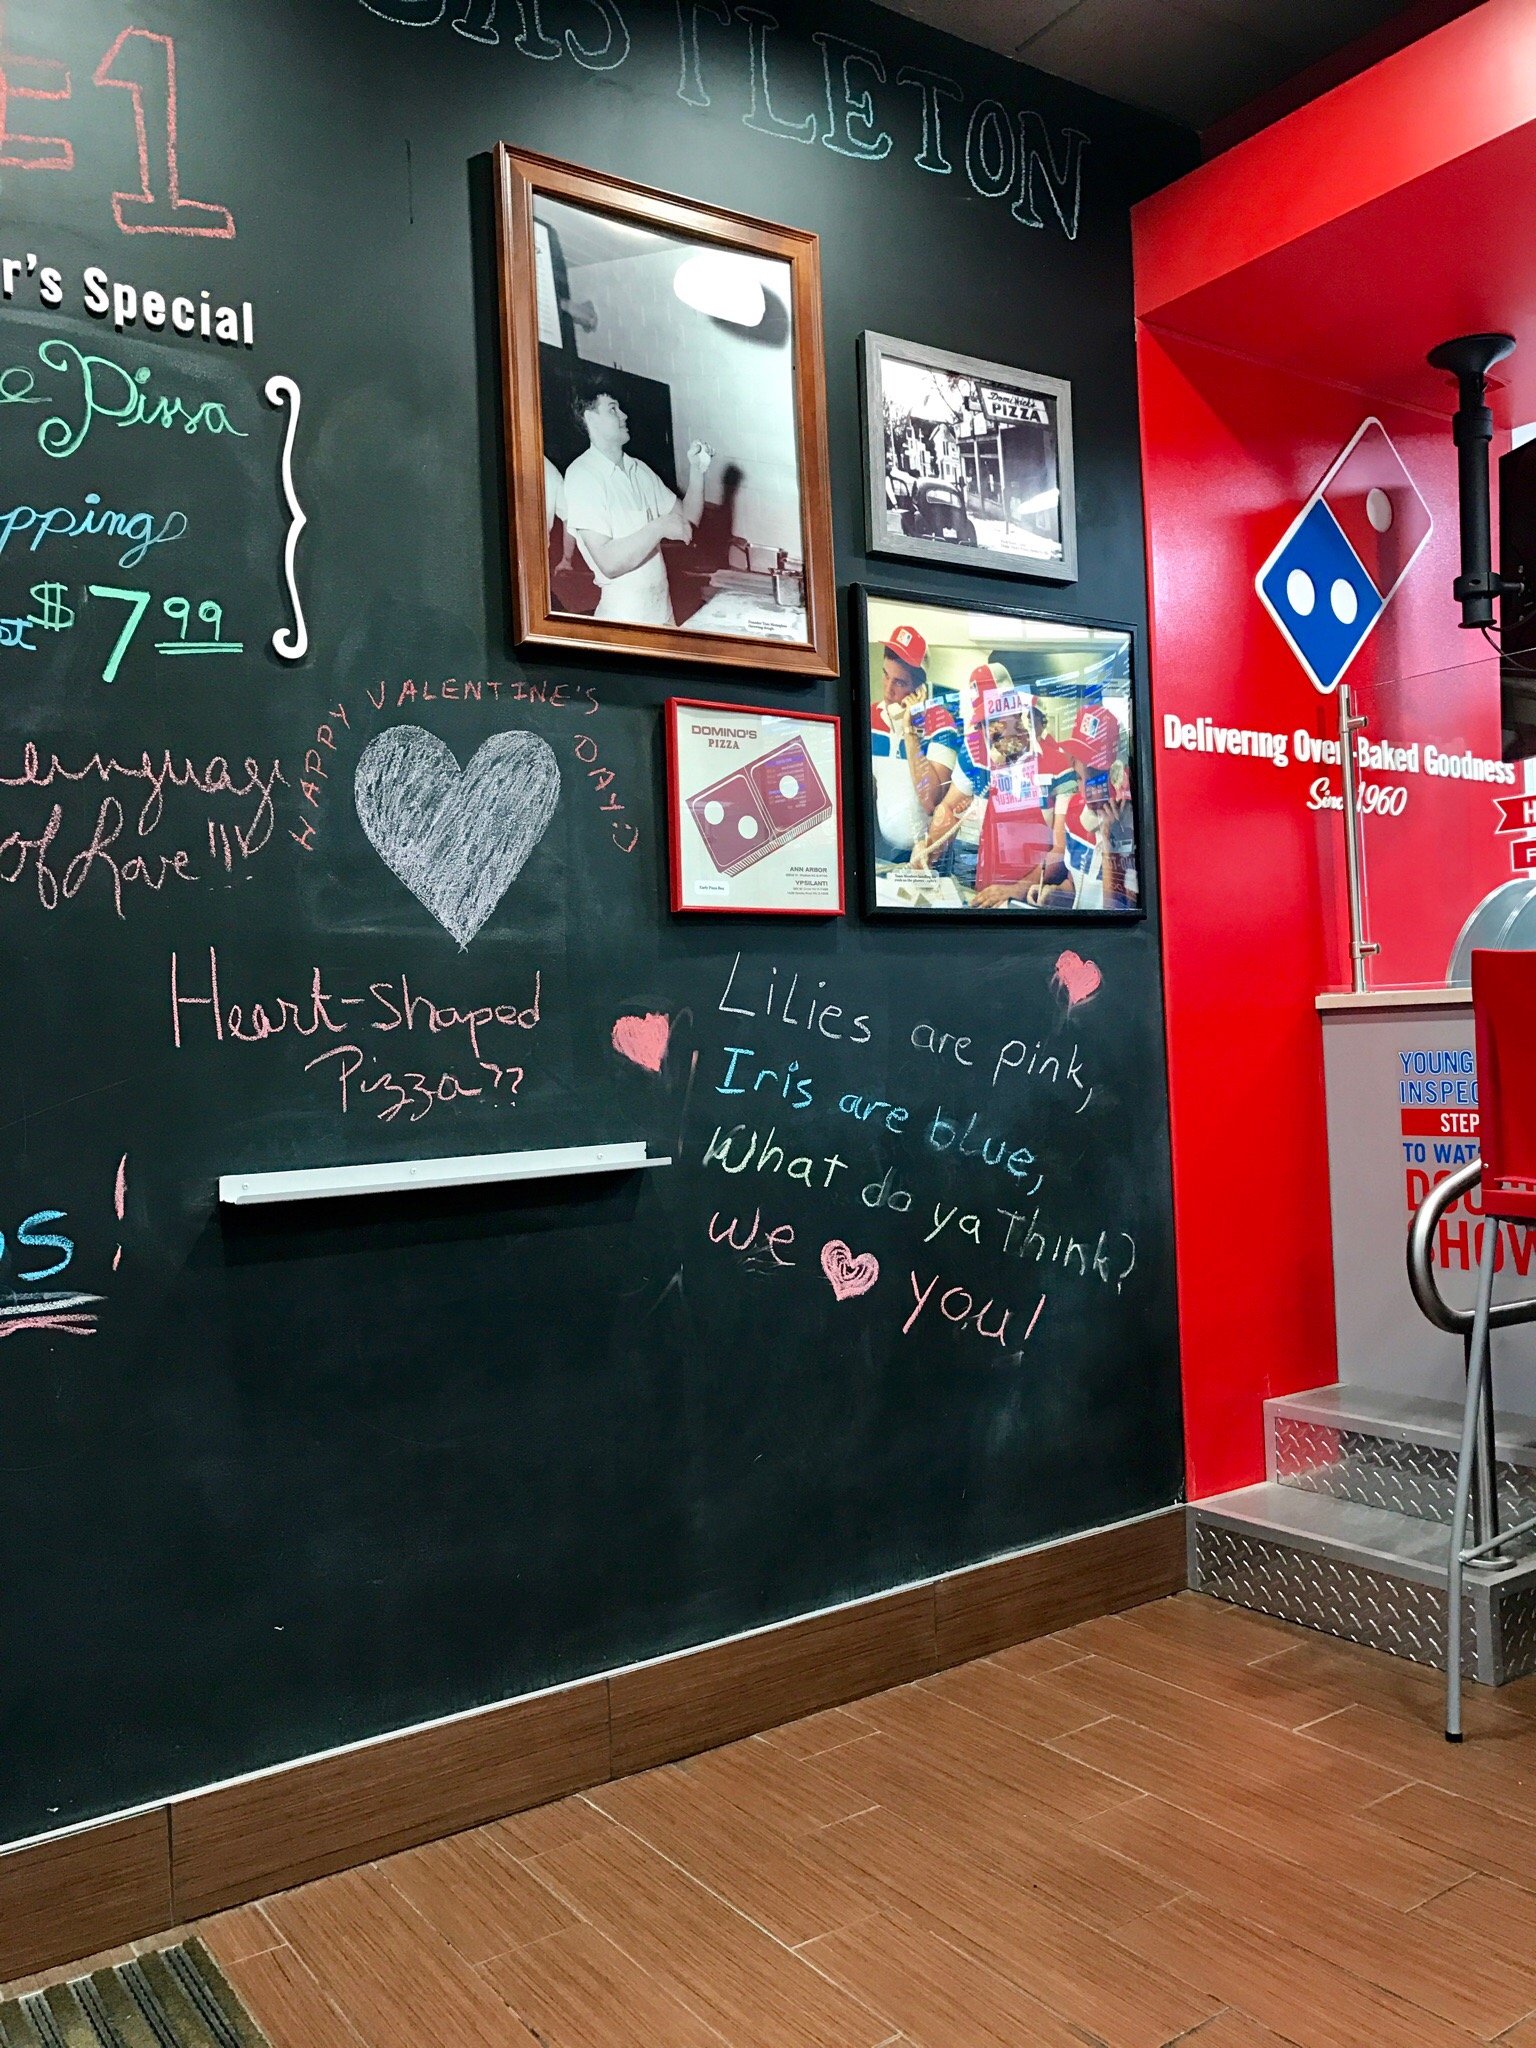 CASTLETON
#1
r's Special
e Pizza
pping
$7.99
HAPPY VALENTINE'S DAY
Language
of Love!!!
Heart-shaped
Pizza??
!
Lilies are pink,
Iris are blue,
What do ya think?
we you!
DomiNick's
PIZZA
DOMINO'S
PIZZA
ANN ARBOR
YPSILANTI
Early Pizza Box
Delivering Oven-Baked Goodness
Since 1960
YOUNG
INSPEC
STEP
TO WATC
DOUGH
SHOW